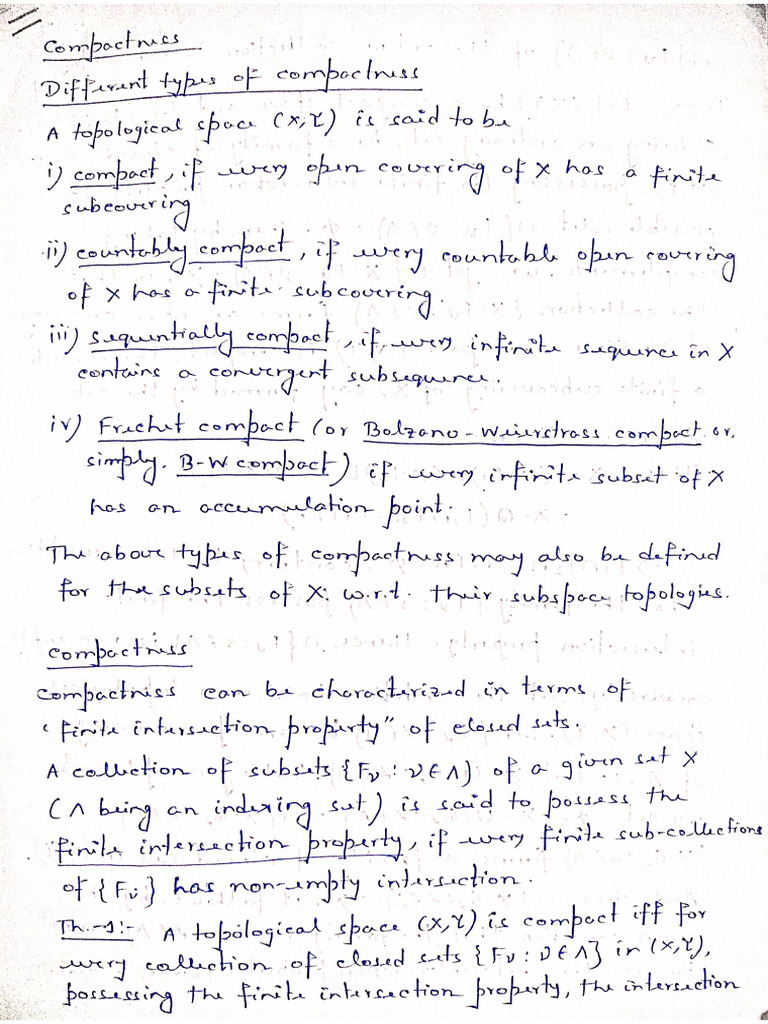 Compactness
Different types of compactness
A topological space (X,τ) is said to be
i) compact, if every open covering of X has a finite
subcovering
ii) countably compact, if every countable open covering
of X has a finite subcovering.
iii) sequentially compact, if, every infinite sequence in X
contains a convergent subsequence.
iv) Frechet compact (or Bolzano-Weierstrass compact or,
simply. B-W compact) if every infinite subset of X
has an accumulation point.
The above types of compactness may also be defined
for the subsets of X. w.r.t. their subspace topologies.
compactness
compactness can be characterized in terms of
"finite intersection property" of closed sets.
A collection of subsets {Fν : ν ∈ Λ} of a given set X
(Λ being an indexing set) is said to possess the
finite intersection property, if every finite sub-collections
of {Fν} has non-empty intersection.
Th.-1:- A topological space (X,τ) is compact iff for
every collection of closed sets {Fν : ν ∈ Λ} in (X,τ),
possessing the finite intersection property, the intersection